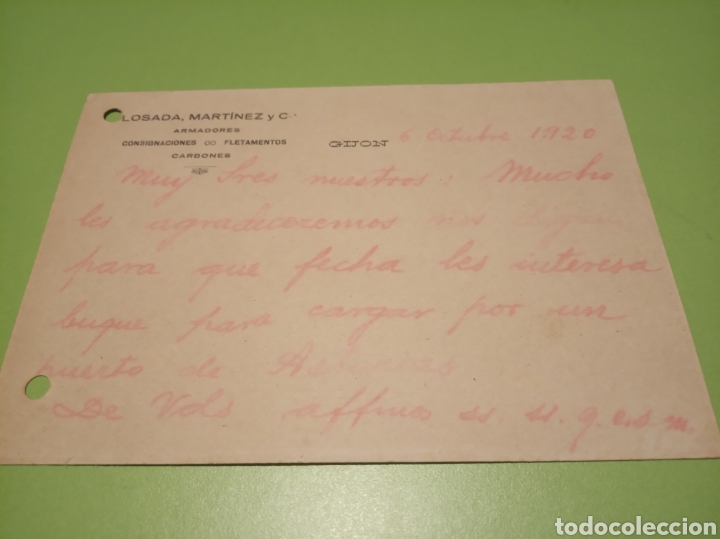 LOSADA, MARTÍNEZ y C.
ARMADORES
CONSIGNACIONES Y FLETAMENTOS
CARBONES
GIJON 6 Octubre 1920
Muy Sres nuestros: Mucho
les agradeceremos nos digan
para que fecha les interesa
buque para cargar por un
puerto de Asturias
De Vds affmos ss. ss. q. e. s. m.
todocoleccion